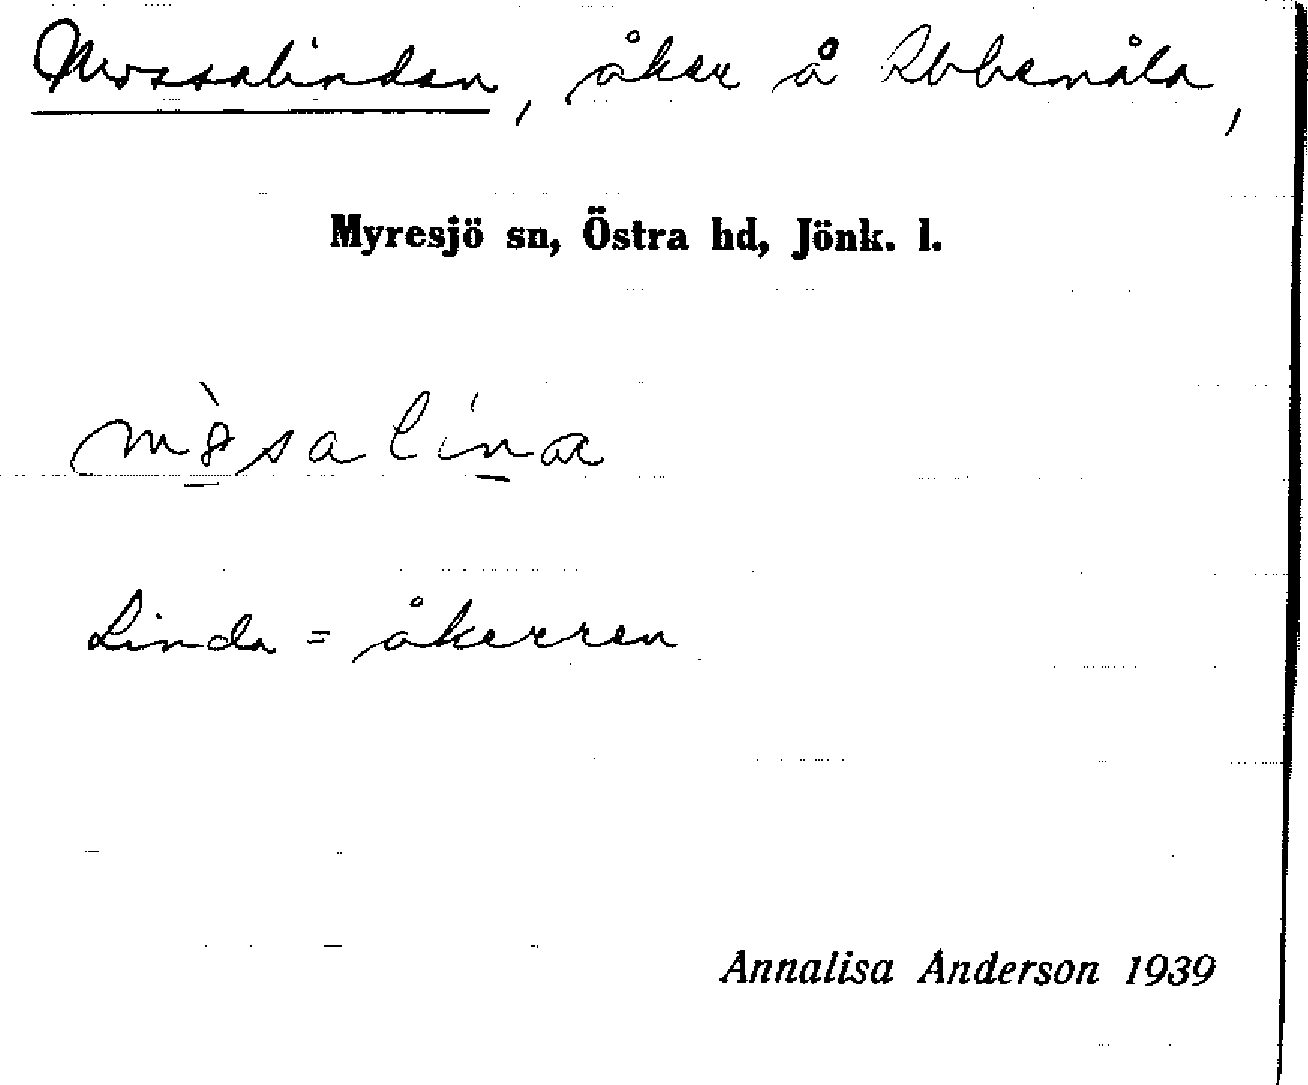 Mossalindan, åker å Ebbemåla,
Myresjö sn, Östra hd, Jönk. l.
Linda = åkerren
Annalisa Anderson 1939